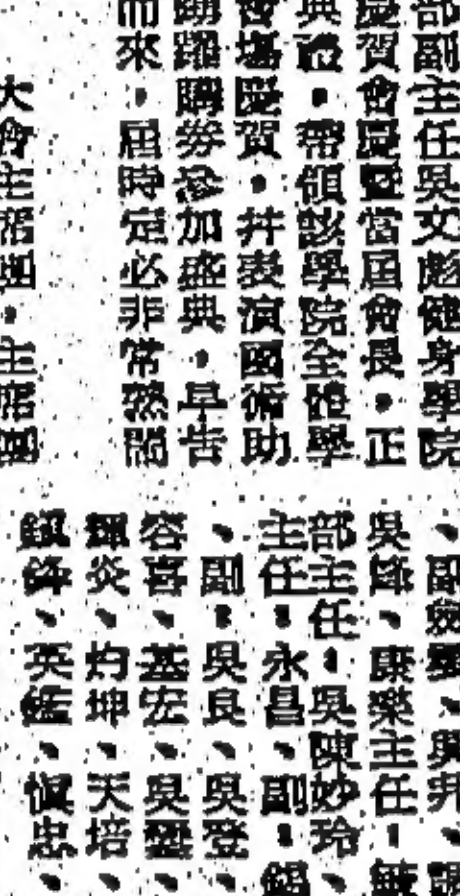 部副主任吳文彪健身學院
慶賀會慶暨當屆會長・正
典禮・帶領該學院全體學
會場慶賀・并表演國術助
踴躍購券參加盛典・早告
而來・屆時定必非常熱鬧
大會主席團・主席團
、副
吳鋒、康樂主任：敏
部主任：吳陳妙玲、
主任：永昌、副：錫
、副：吳良、吳登、
容喜、基宏、吳
輝炎、灼坤、天培、
鎮鋒、英 、慎忠、